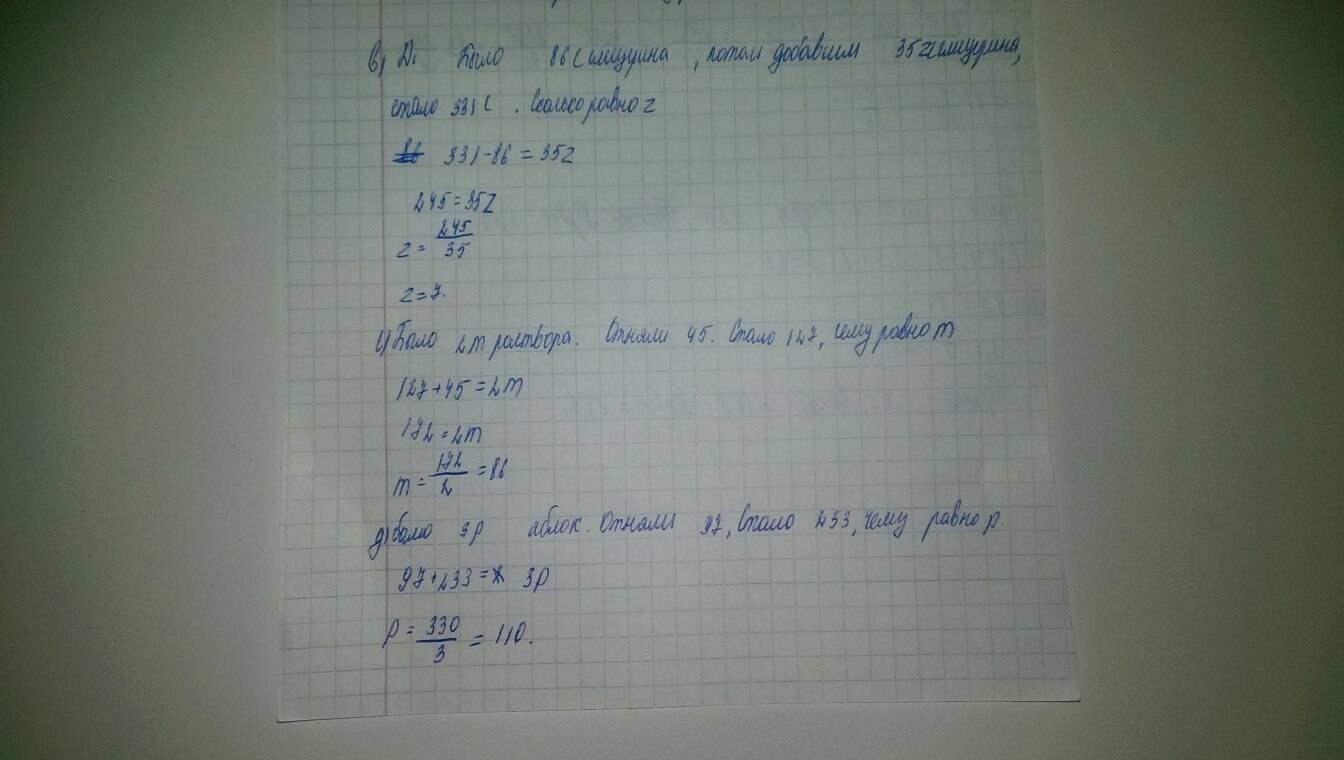 в) Было 86 глицерина, потом добавили 35z глицерина,
стало 331 . Сколько равно z
331-86 = 35z
245=35z
z= 245/35
z=7.
Было 2m раствора. Отняли 45. Стало 127, чему равно m
127+45 = 2m
172=2m
m= 172/2 =86
д) было 3p яблок. Отняли 97, Стало 233, чему равно p.
97+233= 3p
p= 330/3 = 110.